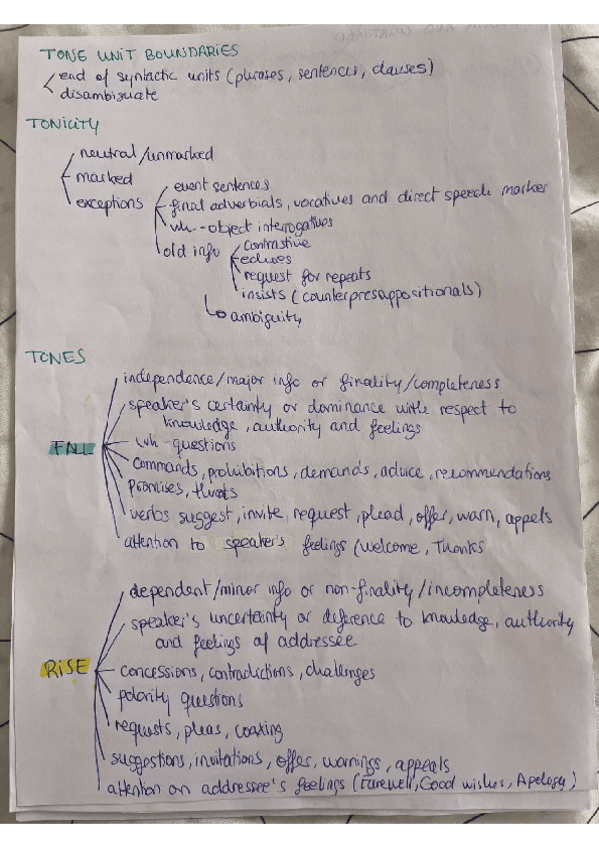 TONE UNIT BOUNDARIES
end of syntactic units (phrases, sentences, clauses)
disambiguate
TONICITY
neutral/unmarked
marked
exceptions
event sentences
final adverbials, vocatives and direct speech marker
wh-object interrogatives
old info
contrastive
echoes
request for repeats
insists (counterpresappositionals)
ambiguity
TONES
FALL
independence/major info or finality/completeness
speaker's certainty or dominance with respect to
knowledge, authority and feelings
wh-questions
commands, prohibitions, demands, advice, recommendations
promises, threats
verbs suggest, invite, request, plead, offer, warn, appels
attention to speaker's feelings (welcome, Thanks
RISE
dependent/minor info or non-finality/incompleteness
speaker's uncertainty or deference to knowledge, authority
and feelings of addressee
concessions, contradictions, challenges
polarity questions
requests, pleas, coaxing
suggestions, invitations, offer, warnings, appeals
attention on addressee's feelings (Farewell, Good wishes, Apology)